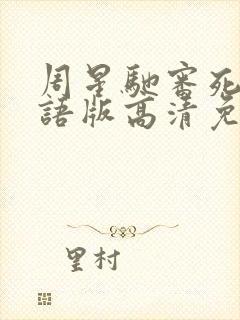 周星馳審死
語版高清免
里村